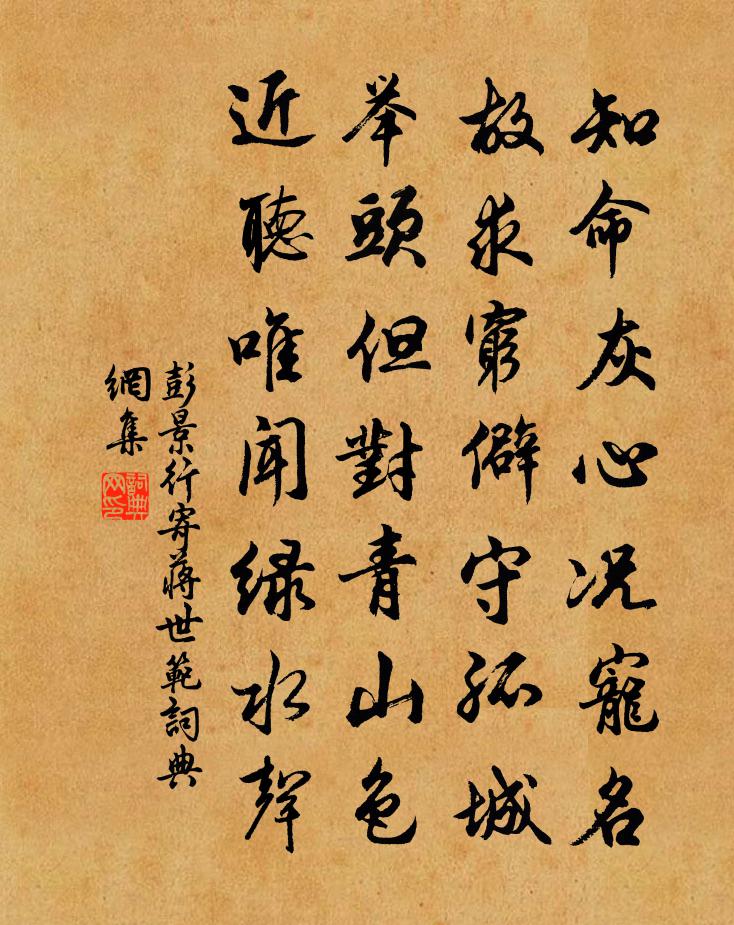 知命灰心况寵名
故求窮僻守孤城
举頭但對青山色
近聽唯聞緑水聲
彭景行寄蔣世範詞典
網集
詞典
网印